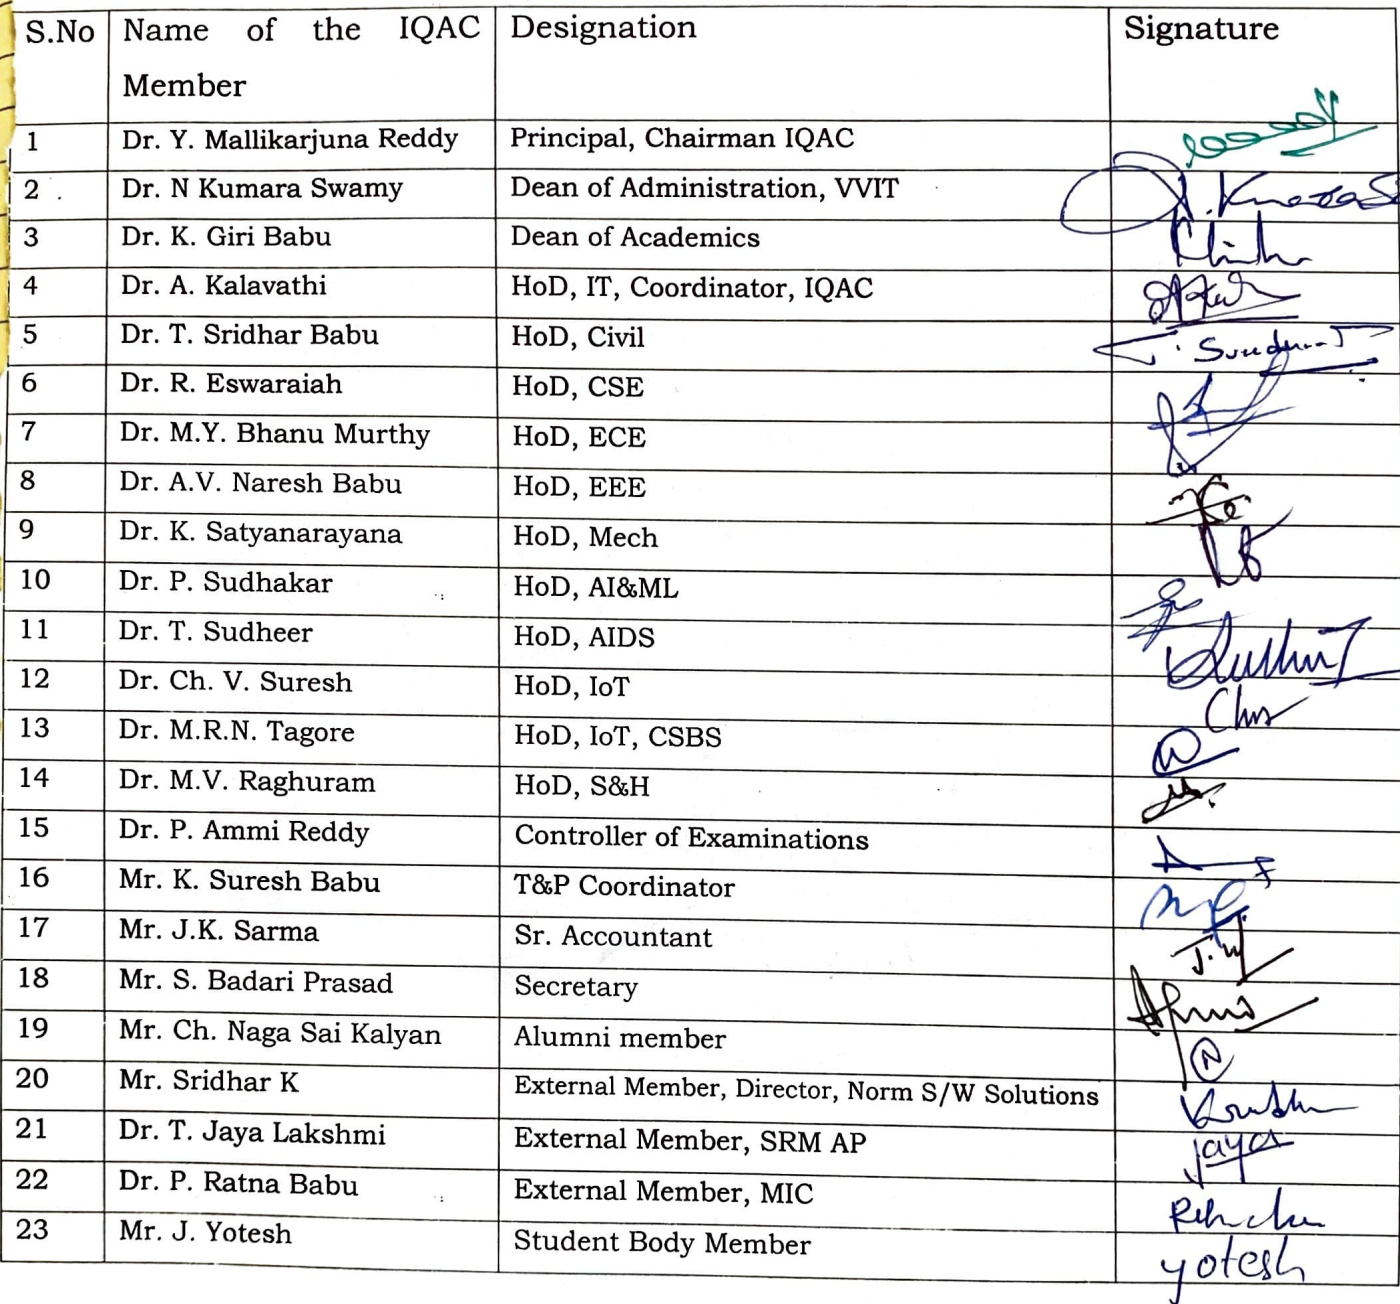 S.No Name of the IQAC Designation Signature
Member
1 Dr. Y. Mallikarjuna Reddy Principal, Chairman IQAC
2 Dr. N Kumara Swamy Dean of Administration, VVIT
3 Dr. K. Giri Babu Dean of Academics
4 Dr. A. Kalavathi HoD, IT, Coordinator, IQAC
5 Dr. T. Sridhar Babu HoD, Civil
6 Dr. R. Eswaraiah HoD, CSE
7 Dr. M.Y. Bhanu Murthy HoD, ECE
8 Dr. A.V. Naresh Babu HoD, EEE
9 Dr. K. Satyanarayana HoD, Mech
10 Dr. P. Sudhakar HoD, AI&ML
11 Dr. T. Sudheer HoD, AIDS
12 Dr. Ch. V. Suresh HoD, IoT
13 Dr. M.R.N. Tagore HoD, IoT, CSBS
14 Dr. M.V. Raghuram HoD, S&H
15 Dr. P. Ammi Reddy Controller of Examinations
16 Mr. K. Suresh Babu T&P Coordinator
17 Mr. J.K. Sarma Sr. Accountant
18 Mr. S. Badari Prasad Secretary
19 Mr. Ch. Naga Sai Kalyan Alumni member
20 Mr. Sridhar K External Member, Director, Norm S/W Solutions
21 Dr. T. Jaya Lakshmi External Member, SRM AP Jaya
22 Dr. P. Ratna Babu External Member, MIC
23 Mr. J. Yotesh Student Body Member yotesh